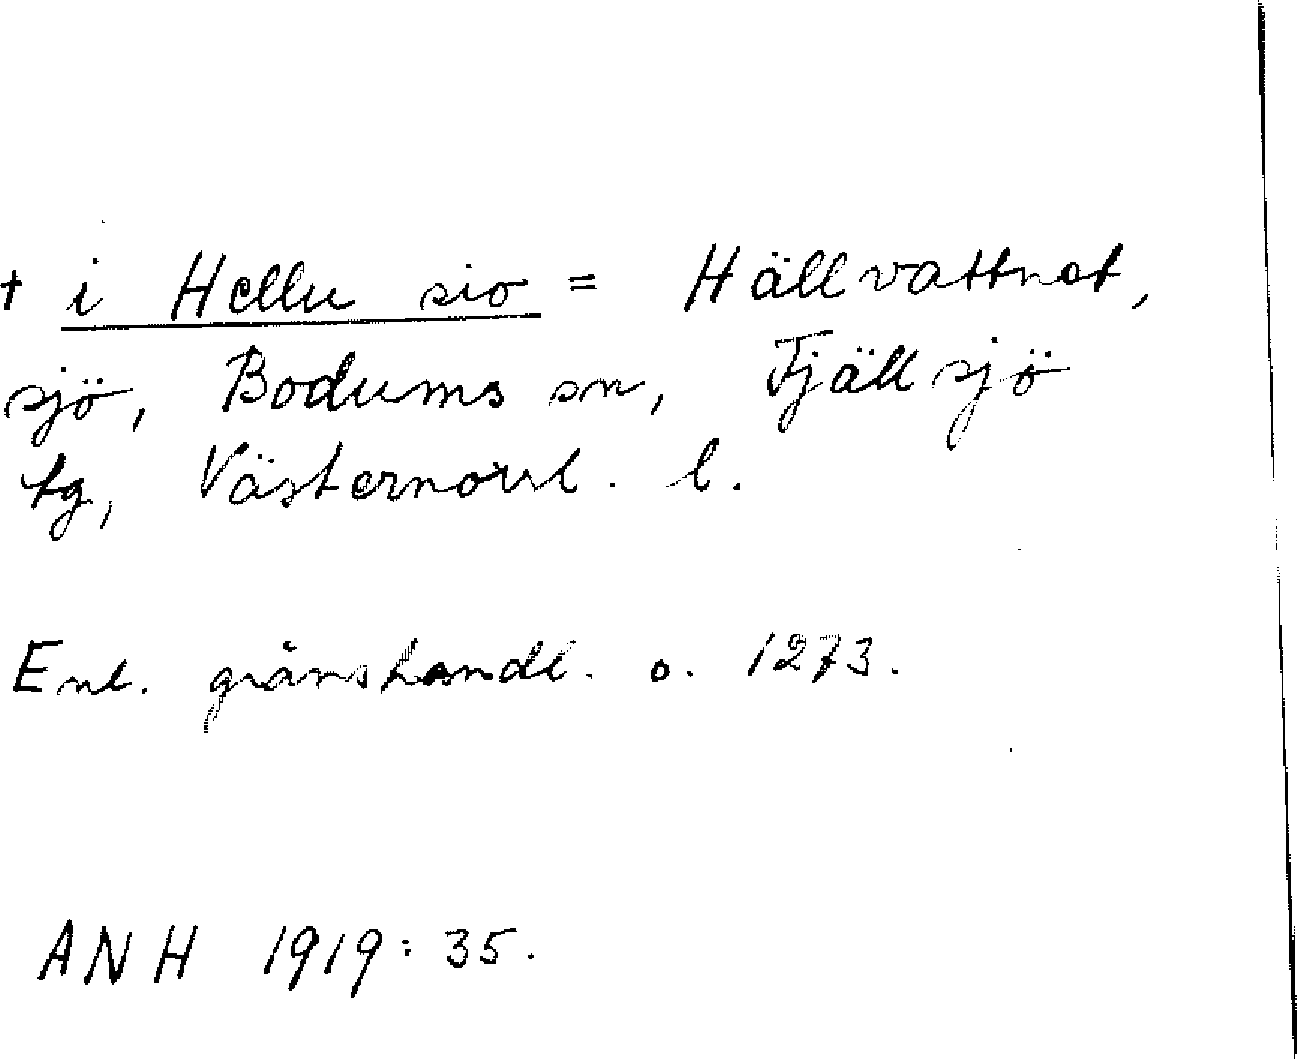 † i Hellu sio = Hällvattnet,
sjö, Bodums sn, Fjällsjö
tg, Västernorrl. l.
Enl. gränshandl. o. 1273.
ANH 1919: 35.